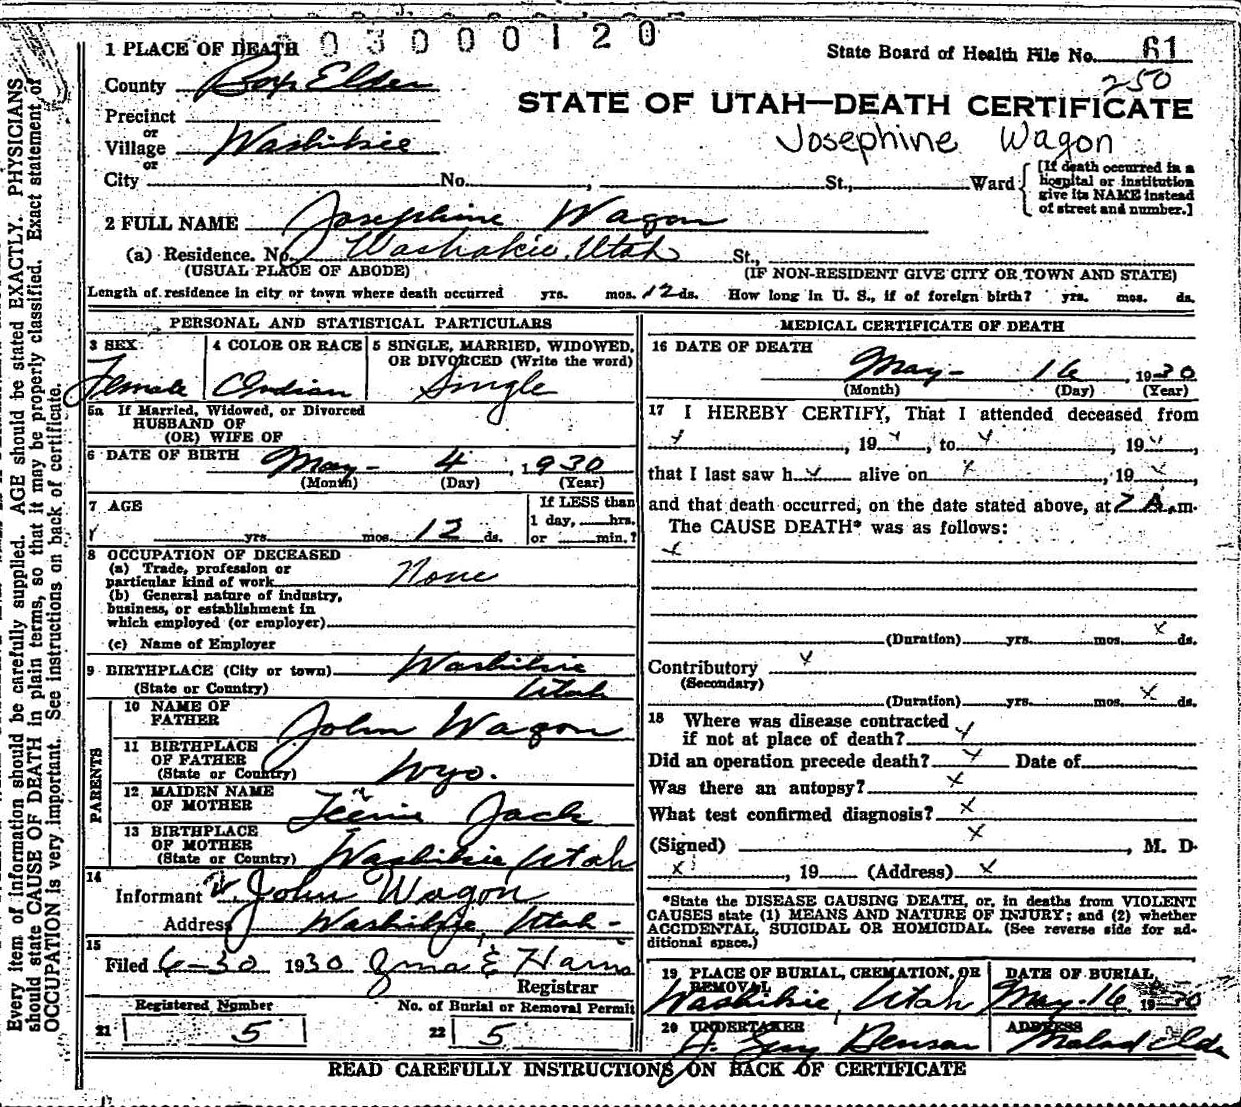 03000120
1 PLACE OF DEATH
State Board of Health File No. 61
250
County Box Elder
STATE OF UTAH—DEATH CERTIFICATE
Precinct
or
Josephine Wagon
Village Washikie
or
City No. , St., Ward
[If death occurred in a
hospital or institution
give its NAME instead
of street and number.]
2 FULL NAME Josephine Wagon
(a) Residence. No. Washakie, Utah St.,
(USUAL PLACE OF ABODE) (IF NON-RESIDENT GIVE CITY OR TOWN AND STATE)
Length of residence in city or town where death occurred yrs. mos. 12 ds. How long in U. S., if of foreign birth? yrs. mos. ds.
PERSONAL AND STATISTICAL PARTICULARS
3 SEX
Female
4 COLOR OR RACE
Indian
5 SINGLE, MARRIED, WIDOWED,
OR DIVORCED (Write the word)
Single
5a If Married, Widowed, or Divorced
HUSBAND OF
(OR) WIFE OF
6 DATE OF BIRTH May- 4, 1930
(Month) (Day) (Year)
7 AGE
yrs. mos. 12 ds.
If LESS than
1 day, hrs.
or min.?
8 OCCUPATION OF DECEASED
(a) Trade, profession or
particular kind of work None
(b) General nature of industry,
business, or establishment in
which employed (or employer)
(c) Name of Employer
9 BIRTHPLACE (City or town) Washikie
(State or Country) Utah
PARENTS
10 NAME OF
FATHER John Wagon
11 BIRTHPLACE
OF FATHER
(State or Country) Wyo.
12 MAIDEN NAME
OF MOTHER Jack
13 BIRTHPLACE
OF MOTHER
(State or Country) Washikie Utah
14
Informant John Wagon
Address Washikie, Utah-
15
Filed 6-30 1930 E Harris
Registrar
Registered Number
21 5
No. of Burial or Removal Permit
22 5
MEDICAL CERTIFICATE OF DEATH
16 DATE OF DEATH
May- 16, 1930
(Month) (Day) (Year)
17 I HEREBY CERTIFY, That I attended deceased from
, 19 , to , 19 ,
that I last saw h alive on , 19 ,
and that death occurred, on the date stated above, at 7 A.m.
The CAUSE DEATH* was as follows:
x
(Duration) yrs. mos. x ds.
Contributory x
(Secondary)
(Duration) yrs. mos. x ds.
18 Where was disease contracted
if not at place of death? x
Did an operation precede death? x Date of
Was there an autopsy? x
What test confirmed diagnosis? x
(Signed) x , M. D.
x , 19 (Address) x
*State the DISEASE CAUSING DEATH, or, in deaths from VIOLENT
CAUSES state (1) MEANS AND NATURE OF INJURY; and (2) whether
ACCIDENTAL, SUICIDAL OR HOMICIDAL. (See reverse side for ad-
ditional space.)
19 PLACE OF BURIAL, CREMATION, OR
REMOVAL
Washikie, Utah
DATE OF BURIAL
May-16 1930
20 UNDERTAKER
J. Benson
ADDRESS
Malad Ida
READ CAREFULLY INSTRUCTIONS ON BACK OF CERTIFICATE
Every item of information should be carefully supplied. AGE should be stated EXACTLY. PHYSICIANS
should state CAUSE OF DEATH in plain terms, so that it may be properly classified. Exact statement of
OCCUPATION is very important. See instructions on back of certificate.